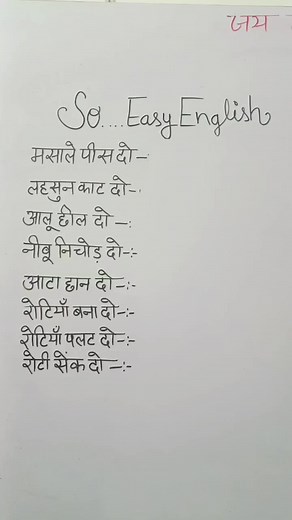 जय
So....Easy English
मसाले पीस दो-
लहसुन काट दो-:
आलू छील दो-:
नीबू निचोड़ दो-:-
आटा छान दो-:-
रोटियाँ बना दो-:-
रोटियाँ पलट दो-:-
रोटी सेंक दो-:-